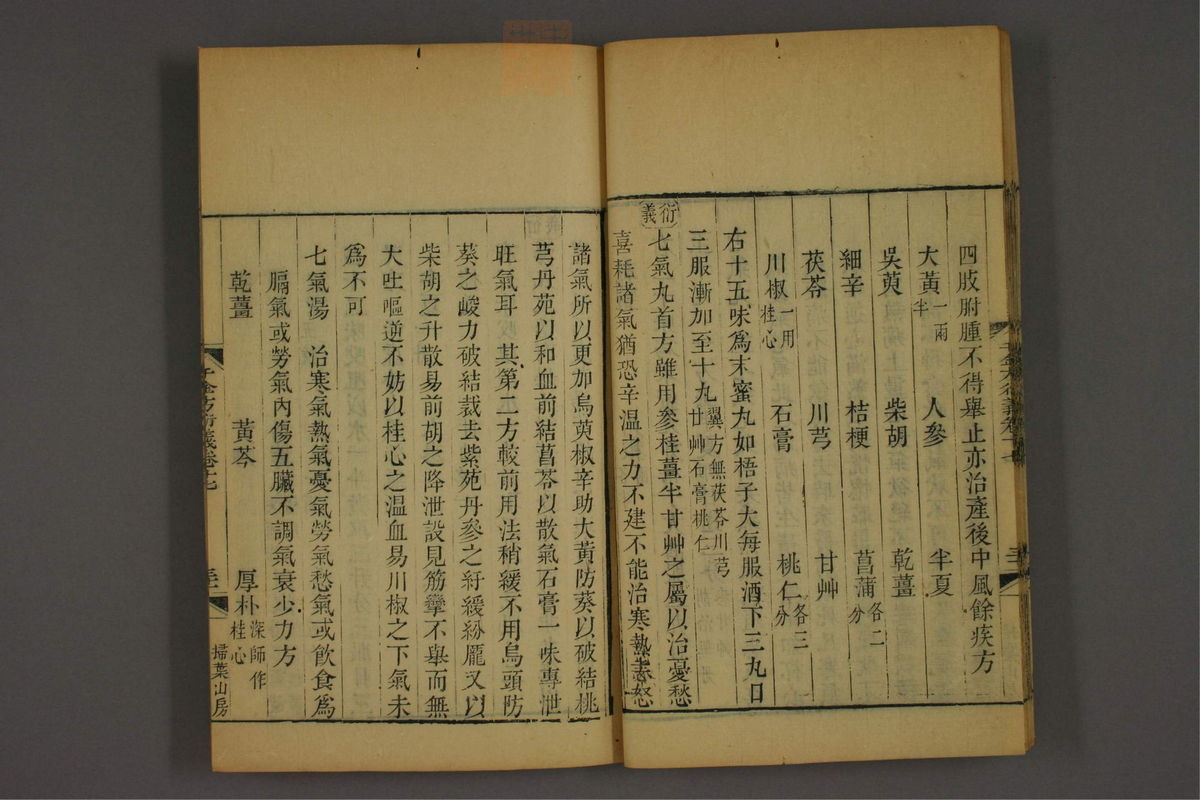 四肢胕腫不得舉止亦治產後中風餘疾方
大黃一兩半 人參 半夏
吳萸 柴胡 乾薑
細辛 桔梗 菖蒲各二分
茯苓 川芎 甘艸
川椒一用桂心 石膏 桃仁各三分
右十五味爲末蜜丸如梧子大每服酒下三丸日
三服漸加至十丸翼方無茯苓川芎甘艸石膏桃仁
衍義
七氣丸首方雖用參桂薑半甘艸之屬以治憂愁
喜耗諸氣猶恐辛溫之力不建不能治寒熱恚怒
諸氣所以更加烏萸椒辛助大黃防葵以破結桃
芎丹苑以和血前結菖苓以散氣石膏一味專泄
旺氣耳其第二方較前用法稍緩不用烏頭防
葵之峻力破結裁去紫苑丹參之紆緩紛厖又以
柴胡之升散易前胡之降泄設見筋攣不舉而無
大吐嘔逆不妨以桂心之溫血易川椒之下氣未
爲不可
七氣湯 治寒氣熱氣憂氣勞氣愁氣或飲食爲
膈氣或勞氣內傷五臟不調氣衰少力方
乾薑 黃芩 厚朴深師作桂心
千金方衍義卷十七
掃葉山房